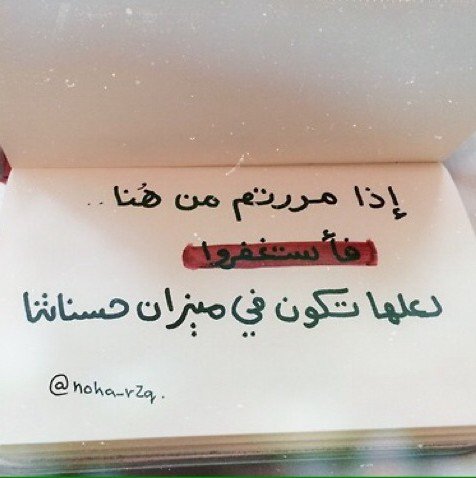 إذا مررتم من هُنا ..
فأستغفروا
لعلها تكون في ميزان حسناتنا
@noha_rzq.